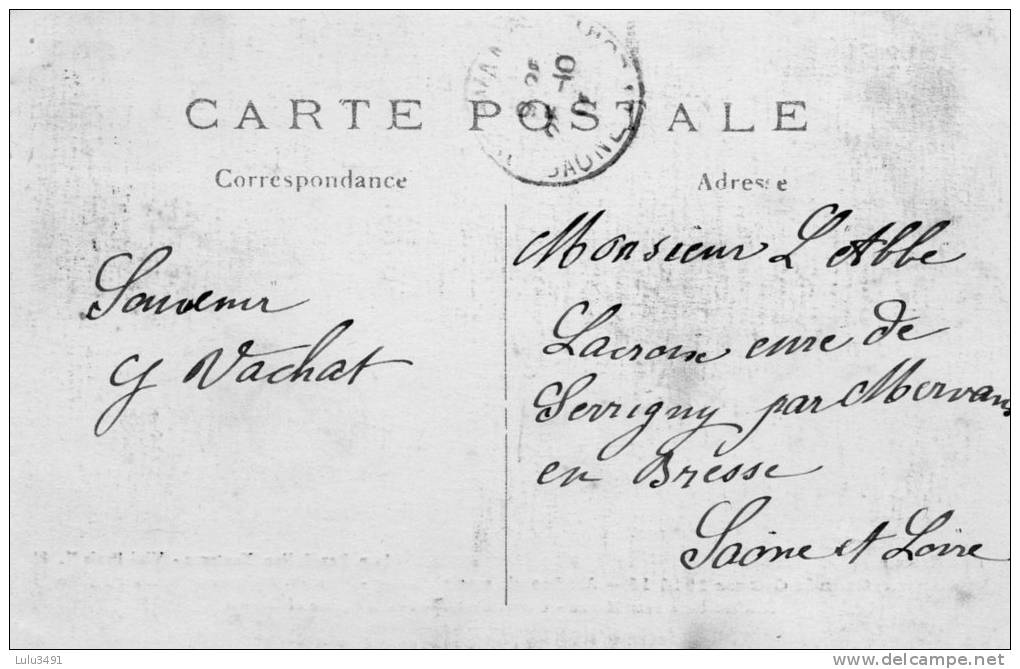 CARTE POSTALE
Correspondance
Adresse
Souvenir
Vachat
Monsieur L'Abbe
Lacroix cure de
Serrigny par Mervans
en Bresse
Saône et Loire
SAONE
Lulu3491
www.delcampe.net